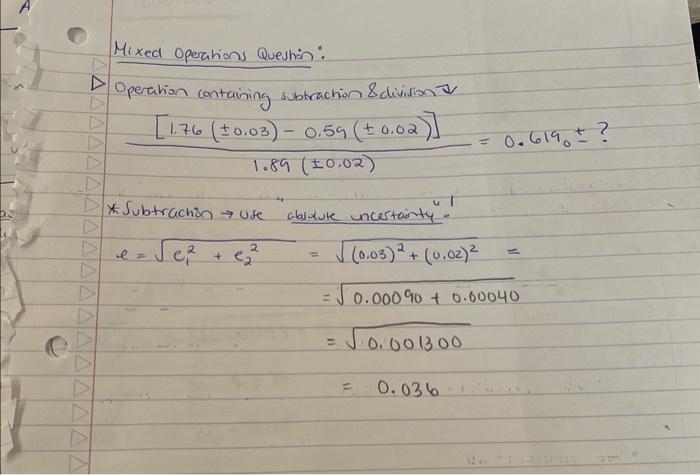 A
Mixed Operations Question:
Operation containing subtraction & division ↓
[1.76 (±0.03) - 0.59 (±0.02)] / 1.89 (±0.02) = 0.619₀ ± ?
* Subtraction → use "absolute uncertainty"!
e = √(e₁² + e₂²) = √((0.03)² + (0.02)²) =
= √(0.00090 + 0.00040)
= √(0.001300)
= 0.036